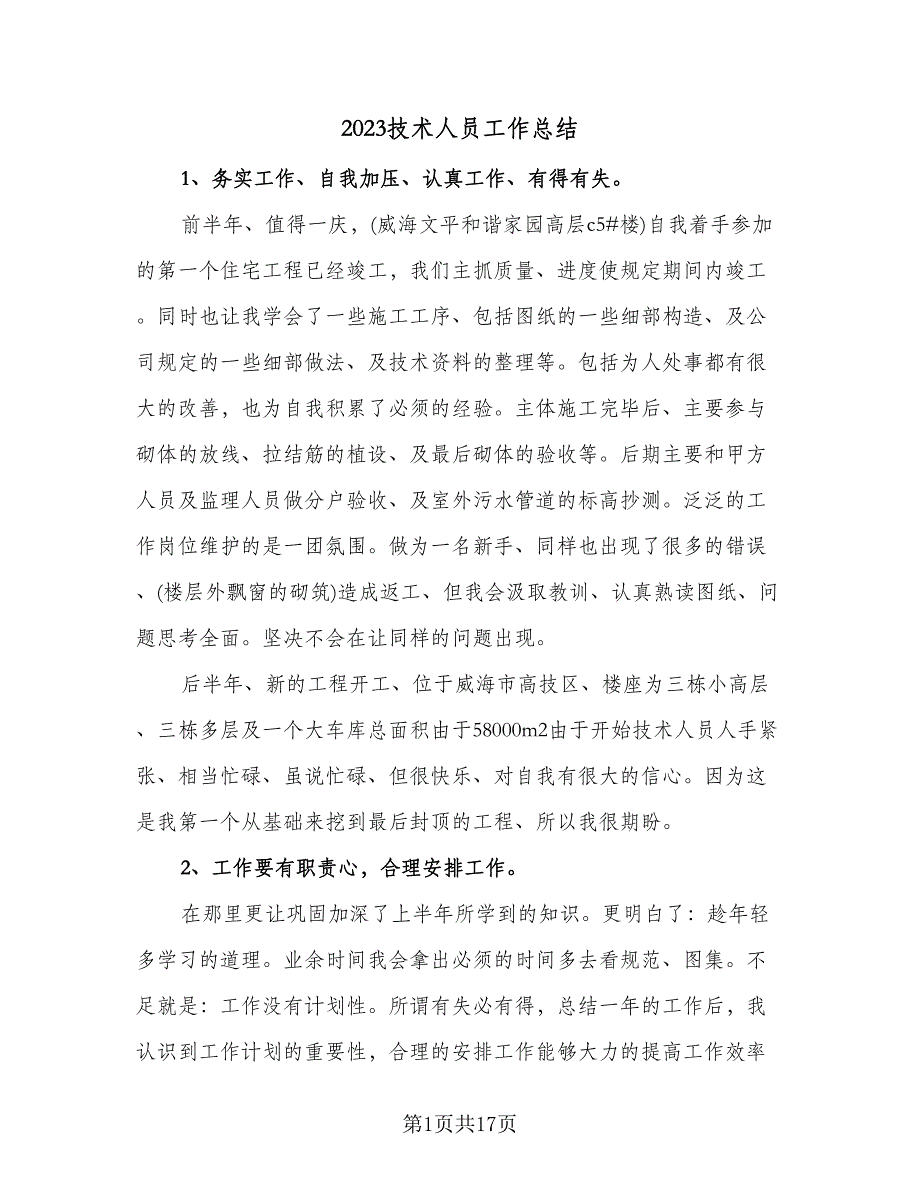 2023技术人员工作总结
1、务实工作、自我加压、认真工作、有得有失。
前半年、值得一庆，(威海文平和谐家园高层c5#楼)自我着手参加
的第一个住宅工程已经竣工，我们主抓质量、进度使规定期间内竣工
。同时也让我学会了一些施工工序、包括图纸的一些细部构造、及公
司规定的一些细部做法、及技术资料的整理等。包括为人处事都有很
大的改善，也为自我积累了必须的经验。主体施工完毕后、主要参与
砌体的放线、拉结筋的植设、及最后砌体的验收等。后期主要和甲方
人员及监理人员做分户验收、及室外污水管道的标高抄测。泛泛的工
作岗位维护的是一团氛围。做为一名新手、同样也出现了很多的错误
、(楼层外飘窗的砌筑)造成返工、但我会汲取教训、认真熟读图纸、问
题思考全面。坚决不会在让同样的问题出现。
后半年、新的工程开工、位于威海市高技区、楼座为三栋小高层
、三栋多层及一个大车库总面积由于58000m2由于开始技术人员人手紧
张、相当忙碌、虽说忙碌、但很快乐、对自我有很大的信心。因为这
是我第一个从基础来挖到最后封顶的工程、所以我很期盼。
2、工作要有职责心，合理安排工作。
在那里更让巩固加深了上半年所学到的知识。更明白了：趁年轻
多学习的道理。业余时间我会拿出必须的时间多去看规范、图集。不
足就是：工作没有计划性。所谓有失必有得，总结一年的工作后，我
认识到工作计划的重要性，合理的安排工作能够大力的提高工作效率
第1页共17页